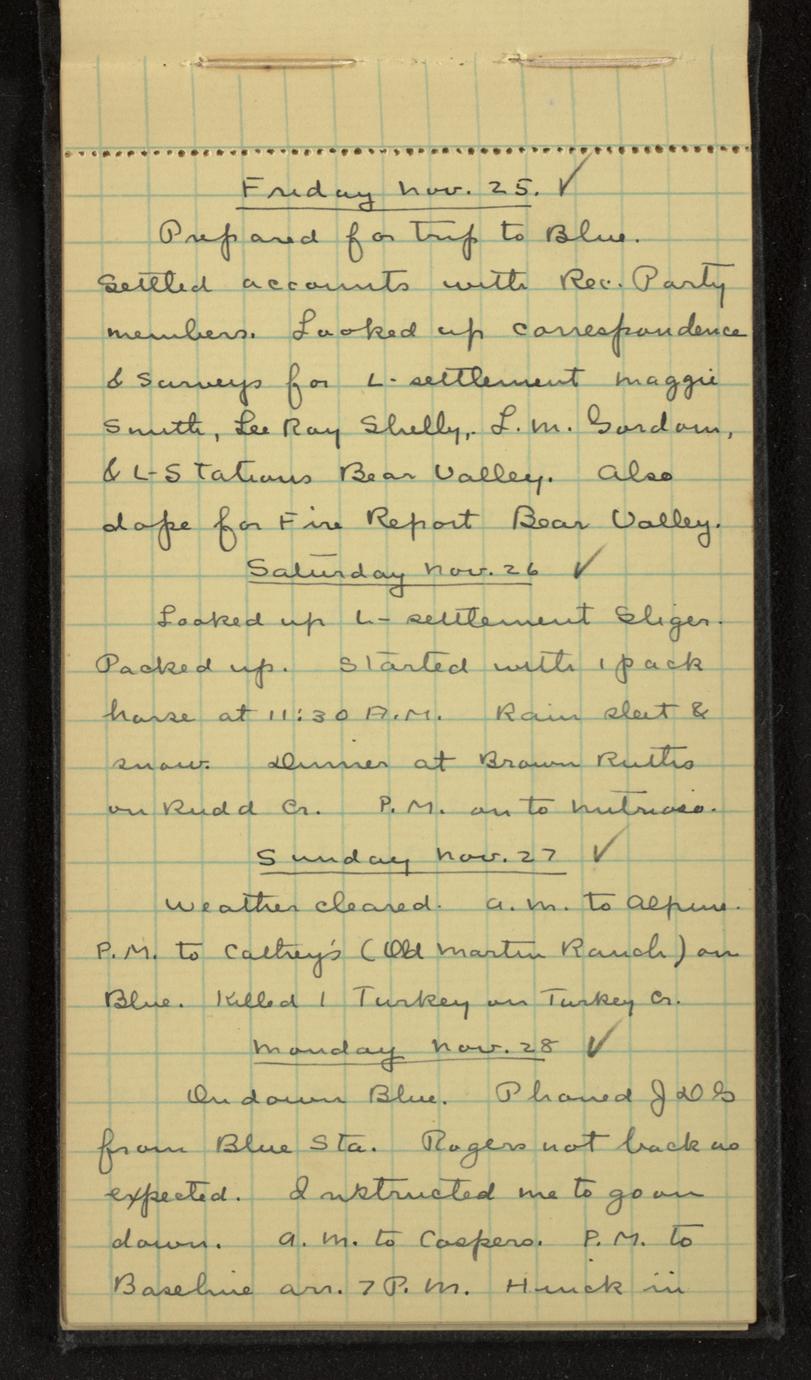 Friday Nov. 25. ✓
Prepared for trip to Blue.
Settled accounts with Rec. Party
members. Looked up correspondence
& Surveys for L- settlement Maggie
Smith, Lee Ray Shelly, L. M. Gordom,
& L-Stations Bear Valley. Also
dope for Fire Report Bear Valley.
Saturday Nov. 26 ✓
Looked up L- settlement Sliger.
Packed up. Started with 1 pack
horse at 11:30 A.M. Rain sleet &
snow. Dinner at Brown Ruths
on Rudd Cr. P.M. on to Nutrioso.
Sunday Nov. 27 ✓
Weather cleared. A.M. to Alpine.
P.M. to (Old Martin Ranch) on
Blue. Killed 1 Turkey on Turkey Cr.
Monday Nov. 28 ✓
On down Blue. Phoned J D G
from Blue Sta. Rogers not back as
expected. Instructed me to go on
down. A.M. to Cospers. P.M. to
Baseline arr. 7 P.M. in